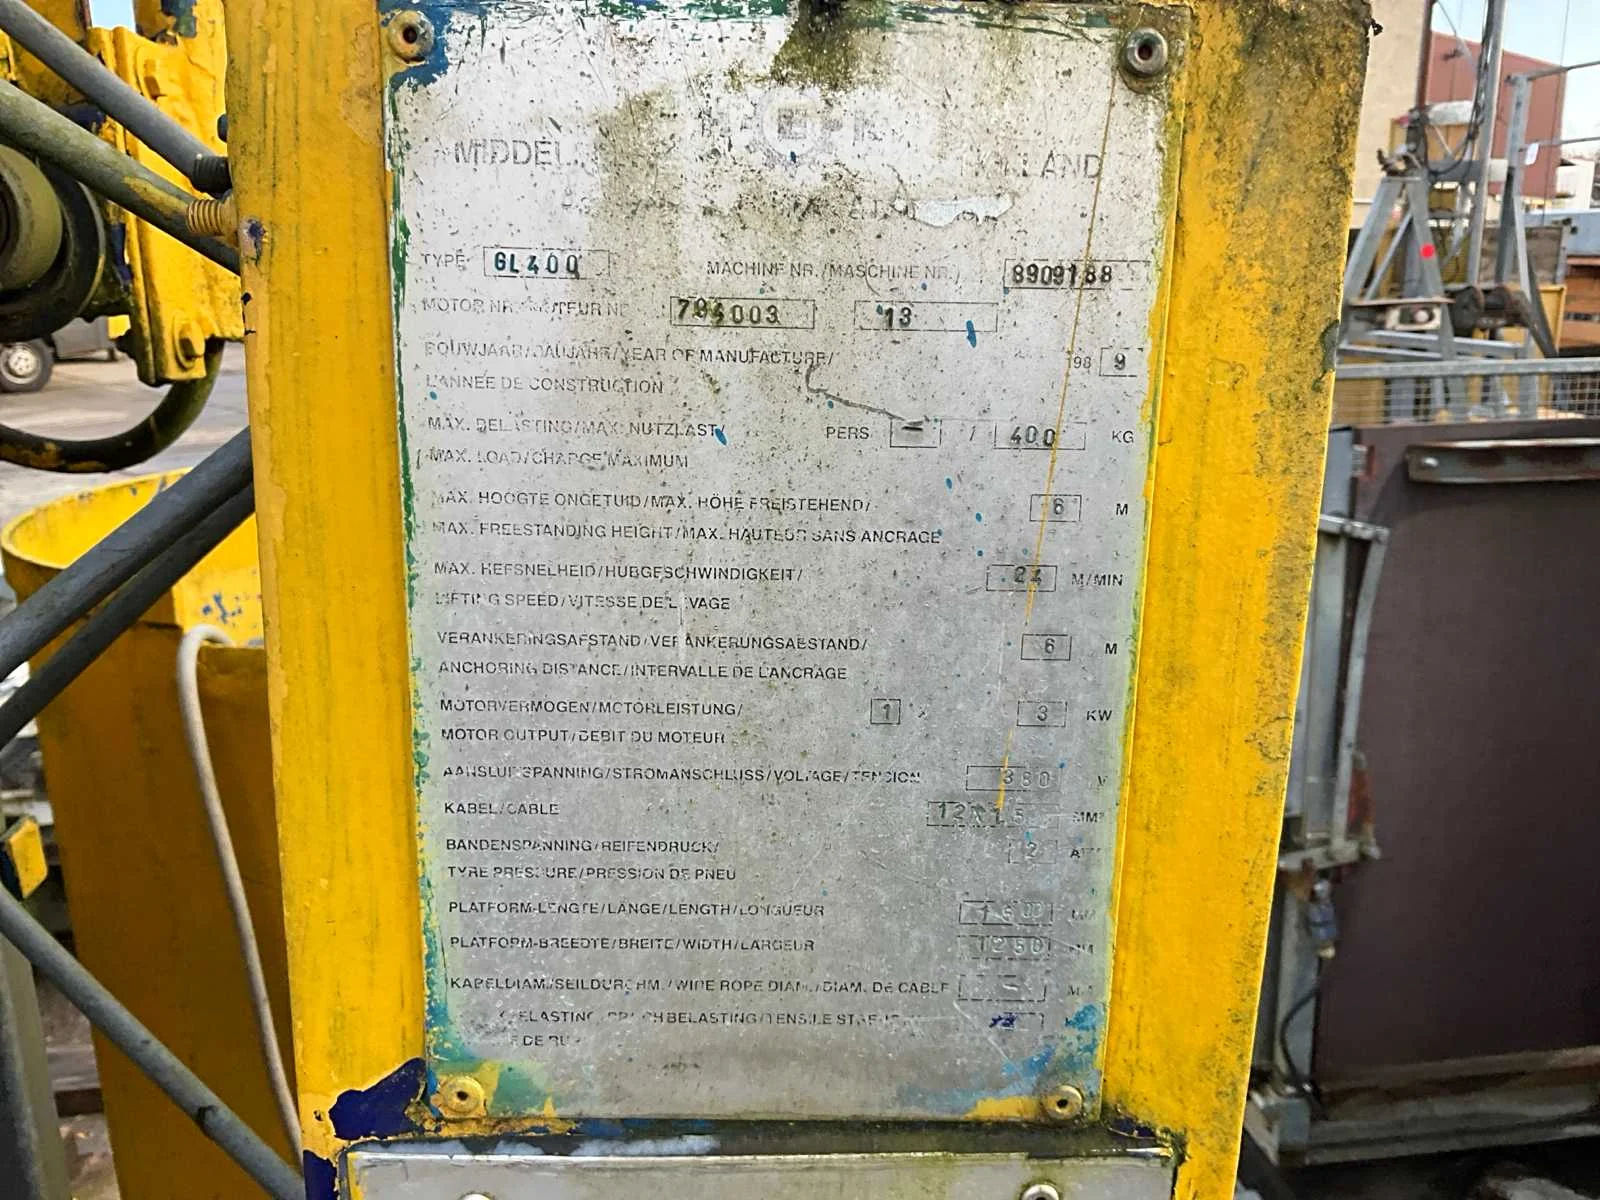 MIDDEL HOLLAND
TYPE: GL400 MACHINE NR./MASCHINE NR./ 8909188
MOTOR NR./MOTEUR NR. 794003 13
BOUWJAAR/BAUJAHR/YEAR OF MANUFACTURE/ 198 9
L'ANNÉE DE CONSTRUCTION
MAX. BELASTING/MAX. NUTZLAST/ PERS. – / 400 KG
MAX. LOAD/CHARGE MAXIMUM
MAX. HOOGTE ONGETUID/MAX. HÖHE FREISTEHEND/ 6 M
MAX. FREESTANDING HEIGHT/MAX. HAUTEUR SANS ANCRAGE
MAX. HEFSNELHEID/HUBGESCHWINDIGKEIT/ 24 M/MIN
LIFTING SPEED/VITESSE DE LEVAGE
VERANKERINGSAFSTAND/VERANKERUNGSABSTAND/ 6 M
ANCHORING DISTANCE/INTERVALLE DE L'ANCRAGE
MOTORVERMOGEN/MOTORLEISTUNG/ 1 x 3 KW
MOTOR OUTPUT/DEBIT DU MOTEUR
AANSLUITSPANNING/STROMANSCHLUSS/VOLTAGE/TENSION 380 V
KABEL/CABLE 12x1,5 MM²
BANDENSPANNING/REIFENDRUCK/ 2
TYRE PRESSURE/PRESSION DE PNEU
PLATFORM-LENGTE/LÄNGE/LENGTH/LONGUEUR 1600 MM
PLATFORM-BREEDTE/BREITE/WIDTH/LARGEUR 1250 MM
KABELDIAM./SEILDURCHM./WIRE ROPE DIAM./DIAM. DE CABLE – MM
BELASTING/BRUCHBELASTING/TENSILE
DE RU